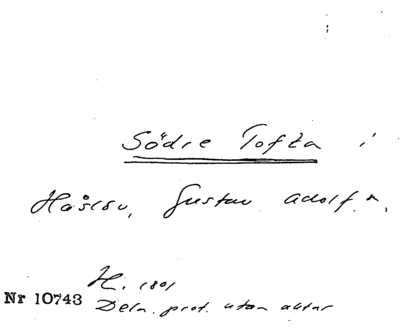 Södre Tofta i
Håslöv, Gustav Adolf.n,
H. 1801
Nr 10743 Deln. prot. utan aktar